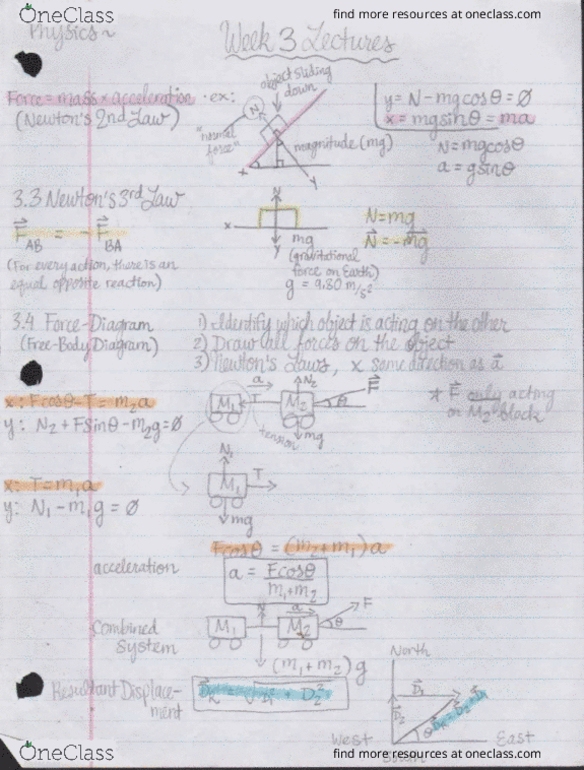 OneClass
find more resources at oneclass.com
Physics~
Week 3 Lectures
Force = mass x acceleration · ex:
(Newton's 2nd Law)
object sliding down
N
"normal force"
magnitude (mg)
x
y
y = N - mgcosθ = Ø
x = mgsinθ = ma
N = mgcosθ
a = gsinθ
3.3 Newton's 3rd Law
F⃗AB = - F⃗BA
(For every action, there is an
equal opposite reaction)
N
x
y
mg
(gravitational
force on Earth)
g = 9.80 m/s²
N = mg
N⃗ = -mg⃗
3.4 Force-Diagram
(Free-Body Diagram)
1) Identify which object is acting on the other
2) Draw all forces on the object
3) Newton's Laws, x same direction as a⃗
x: Fcosθ - T = m₂a
y: N₂ + Fsinθ - m₂g = Ø
a⃗
M₁
T
M₂
N₂
F⃗
θ
tension
mg
* F⃗ only acting
on M₂ block
x: T = m₁a
y: N₁ - m₁g = Ø
N₁
M₁
T
mg
Fcosθ = (m₂+m₁)a
acceleration
a = Fcosθ
m₁+m₂
Combined
System
N
M₁
a⃗
M₂
F
θ
(m₁+m₂)g
Resultant Displace-
ment
North
D⃗₁
D⃗₂
θ
West
East
OneClass
find more resources at oneclass.com